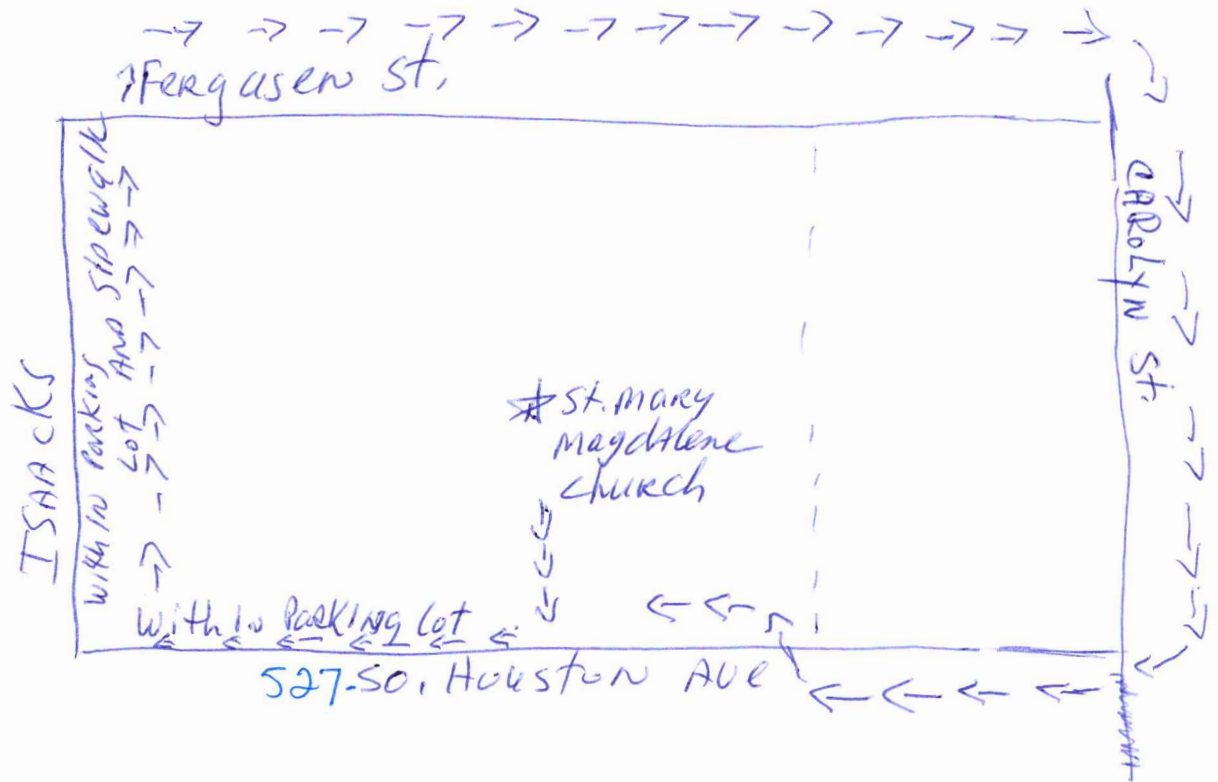 Fergusen St.
within Parking
Lot And Sidewalk
ISAACKS
CAROLYN St.
St. Mary
Magdalene
Church
Within Parking Lot
527-So. Houston Ave